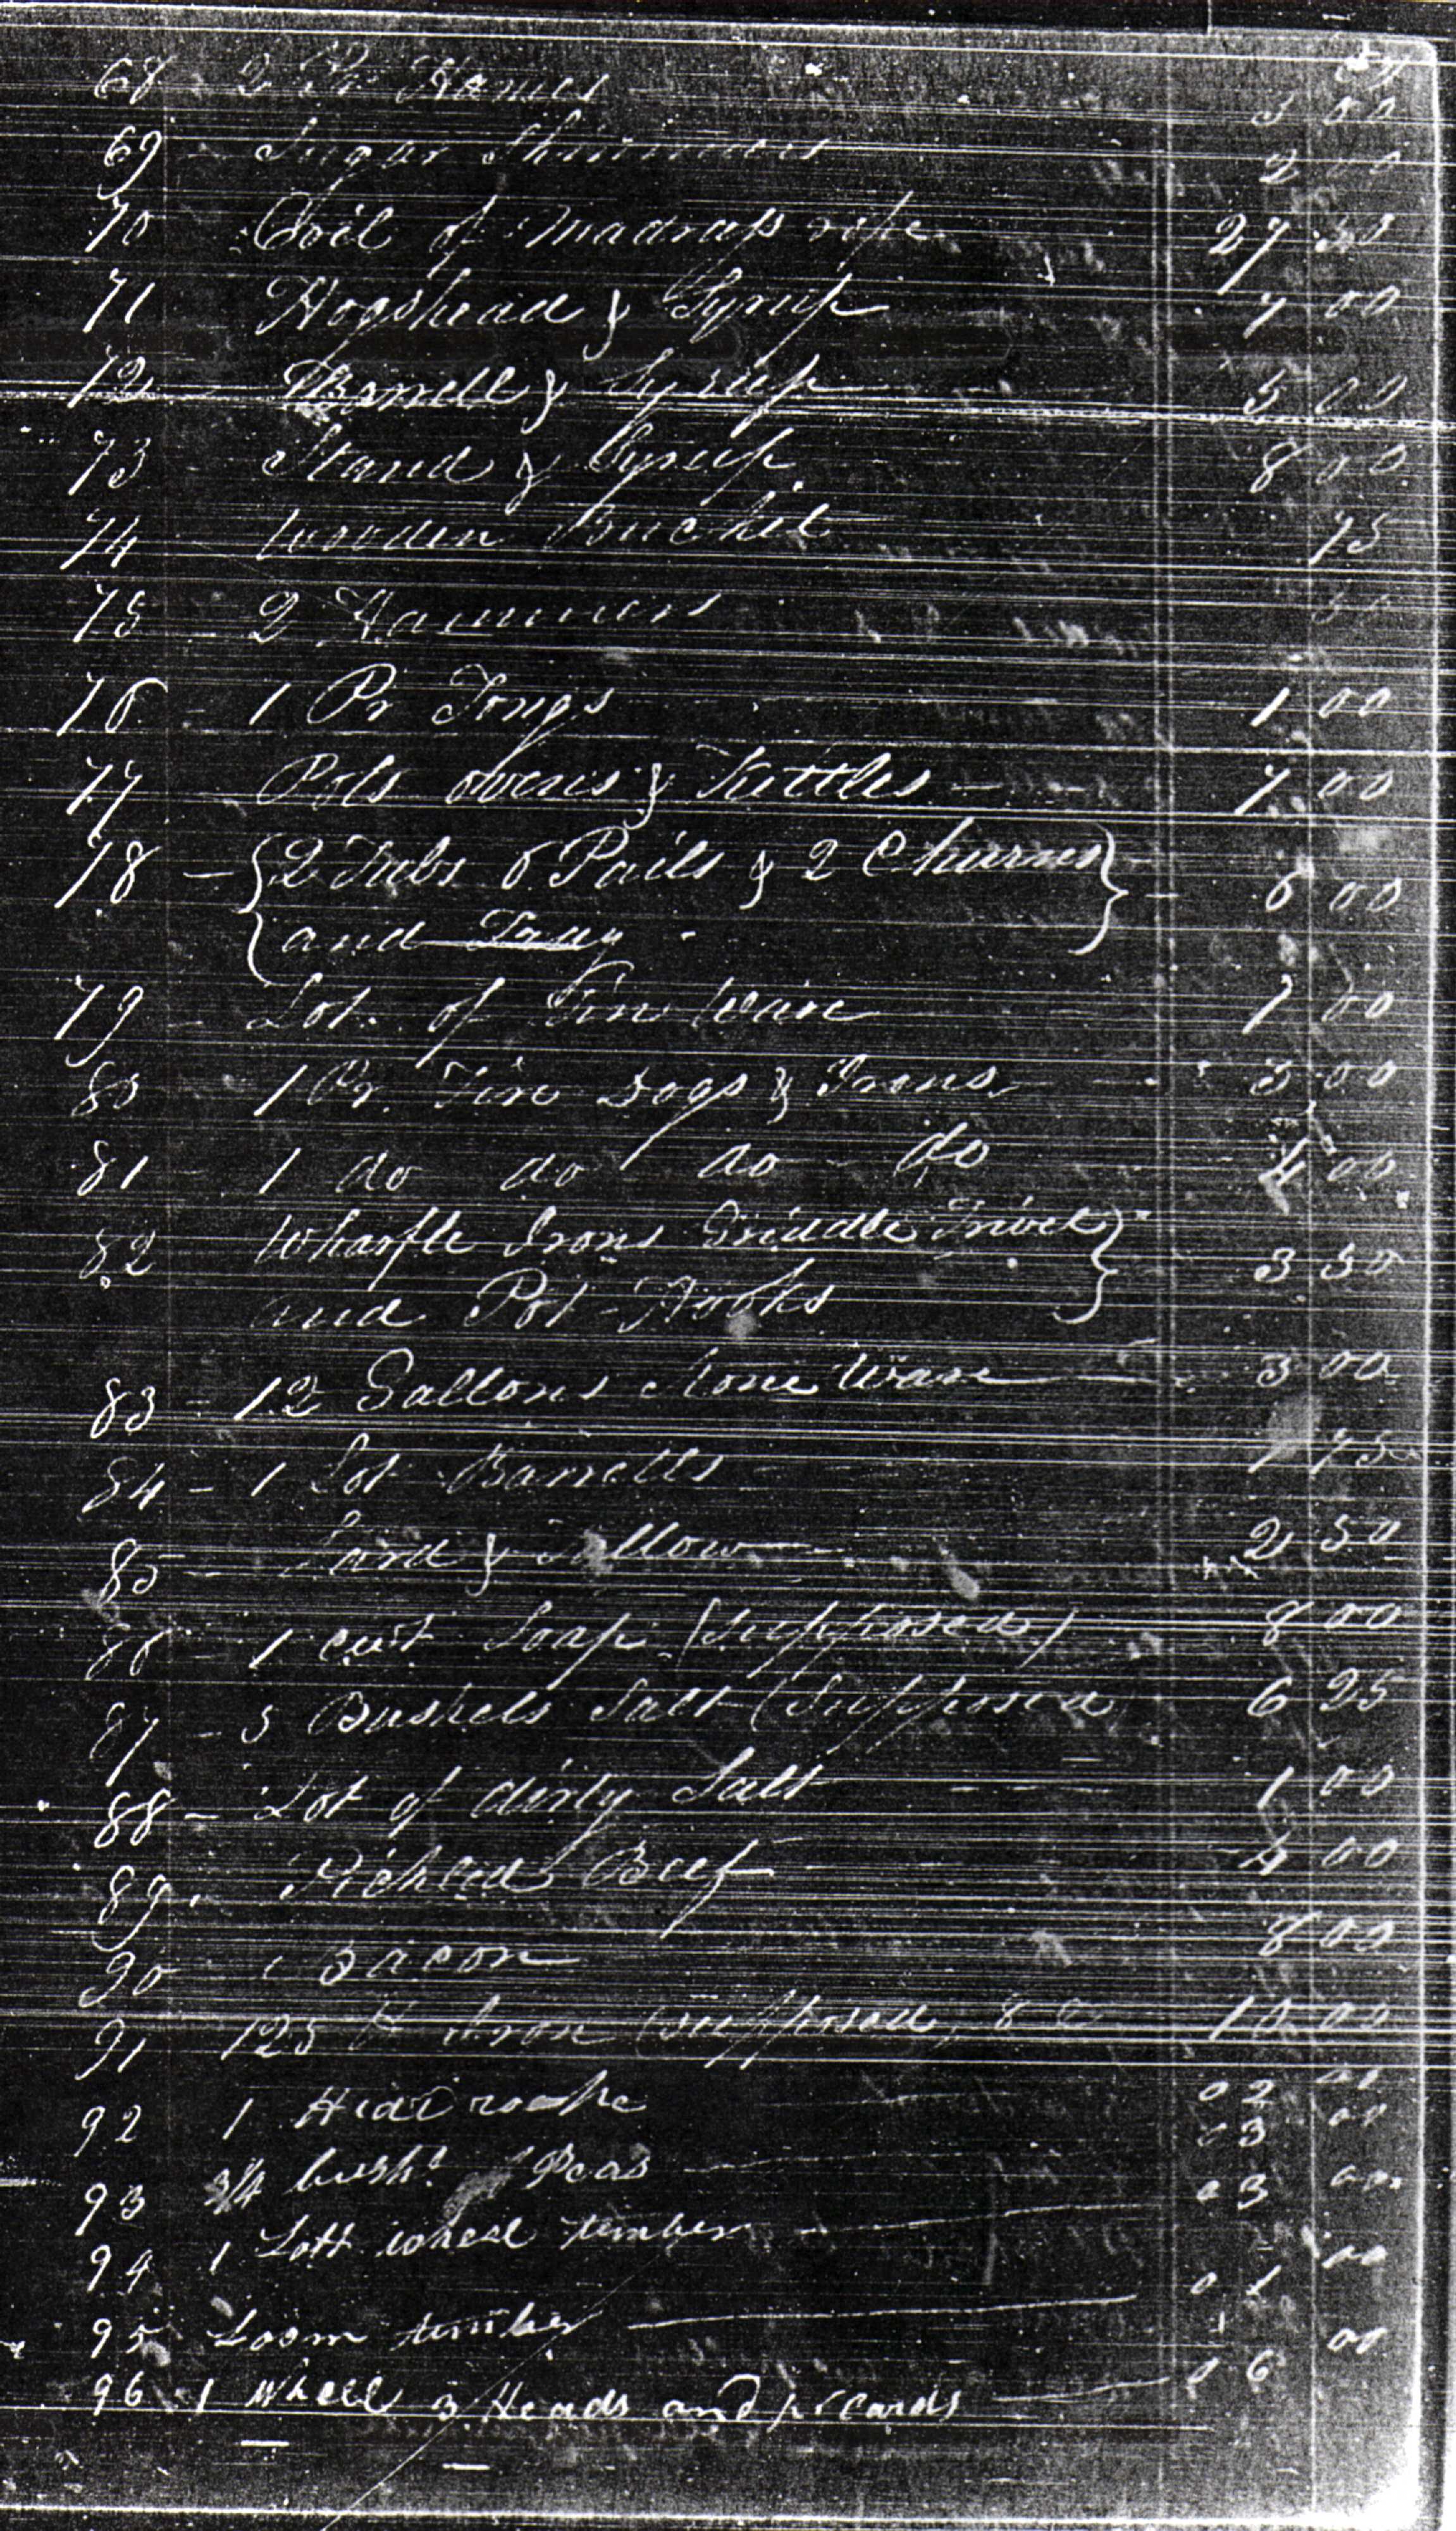 68 - 2 Pr Hames 3 00
69 - Sugar Skimmers 2 00
70 Coil of Madrass rope 27 50
71 Hogshead & Syrup 7 00
72 - Barrell & Syrup 5 00
73 - Stand & Syrup 8 00
74 - Wooden Bucket 75
75 - 2 Hammers 50
76 - 1 Pr Tongs 1 00
77 - Pots ovens & Kettles - 7 00
78 - {2 Tubs 6 Pails & 2 Churns} - 6 00
{and Tray - }
79 - Lot of Tin Ware 7 00
80 1 Pr. Fire Dogs & Irons 3 00
81 - 1 do do do do 4 00
82 Wharfle Irons Griddle Trivet } 3 50
and Pot-Hooks }
83 - 12 Gallons Stone Ware 3 00
84 - 1 Lot Barrells 1 75
85 - Lard & Tallow 2 50
86 - 1 cwt Soap (Supposed) 8 00
87 - 5 Bushels Salt (Supposed 6 25
88 - Lot of dirty Salt 1 00
89 - Pickled Beef 4 00
90 - Bacon 8 00
91 125 Iron (supposed) 8 10 00
92 1 02 00
93 3/4 bush. Peas 03 00
94 1 Lott wheel timber 03 00
95 Loom timber 01 00
96 1 Wheel 3 Heads and pr cards 06 00